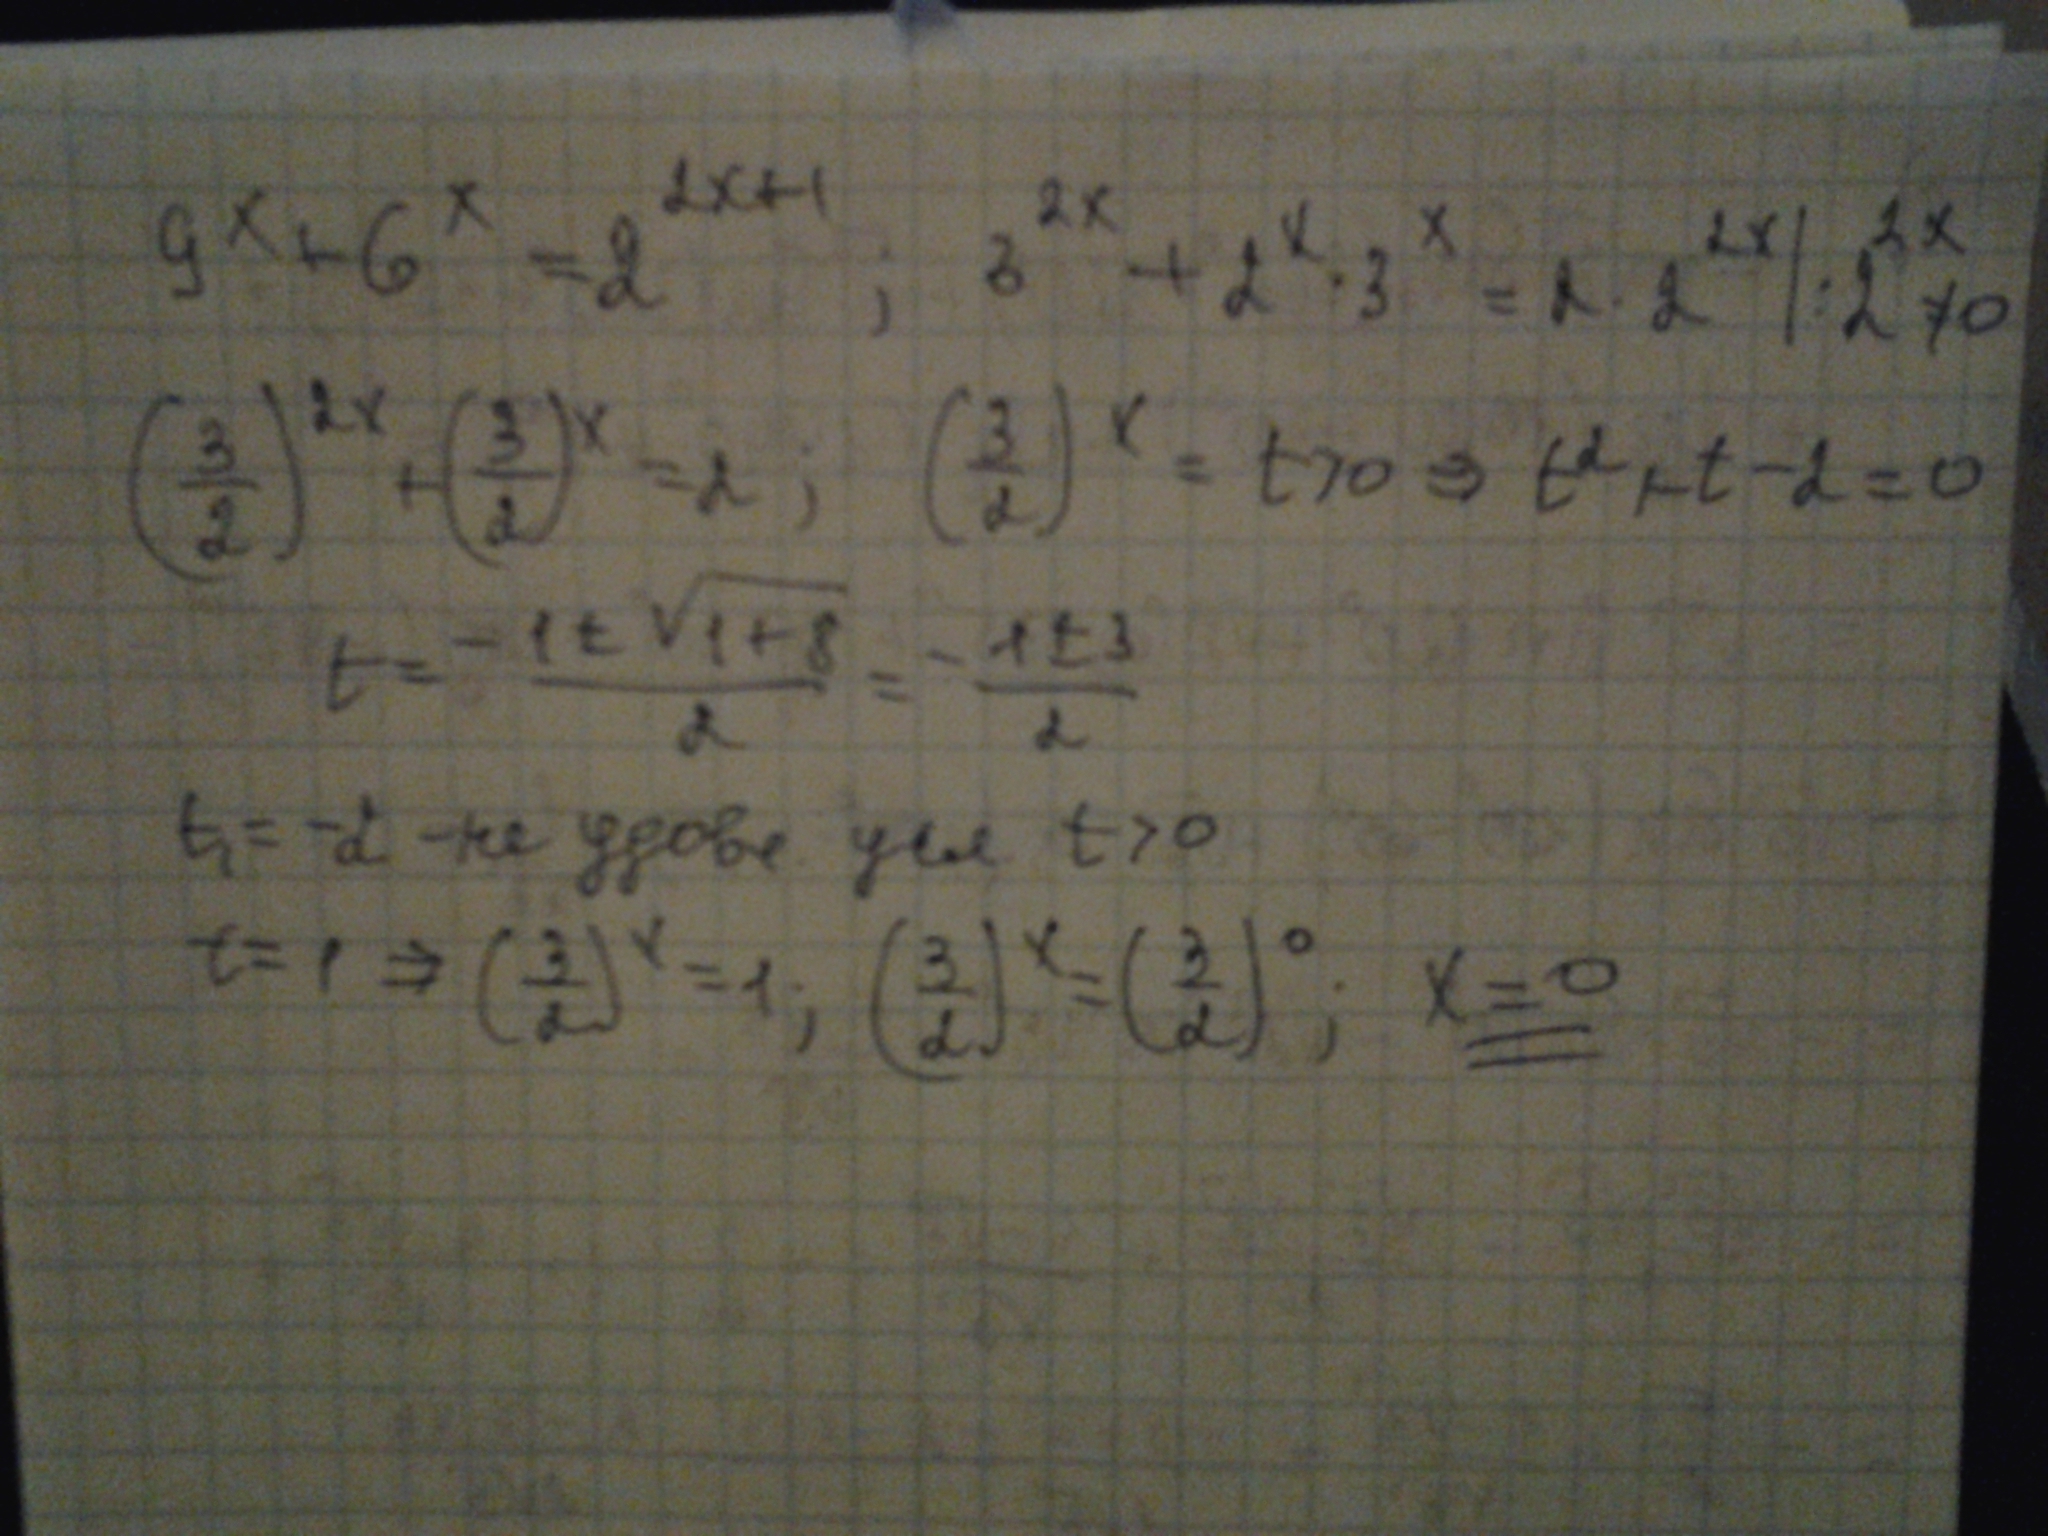 9^x + 6^x = 2^{2x+1} ; 3^{2x} + 2^x · 3^x = 2 · 2^{2x} | : 2^{2x} ≠ 0
(3/2)^{2x} + (3/2)^x = 2 ; (3/2)^x = t > 0 ⇒ t^2 + t - 2 = 0
t = (-1 ± √(1+8))/2 = (-1 ± 3)/2
t₁ = -2 - не удовл. усл t > 0
t = 1 ⇒ (3/2)^x = 1 ; (3/2)^x = (3/2)^0 ; x = 0